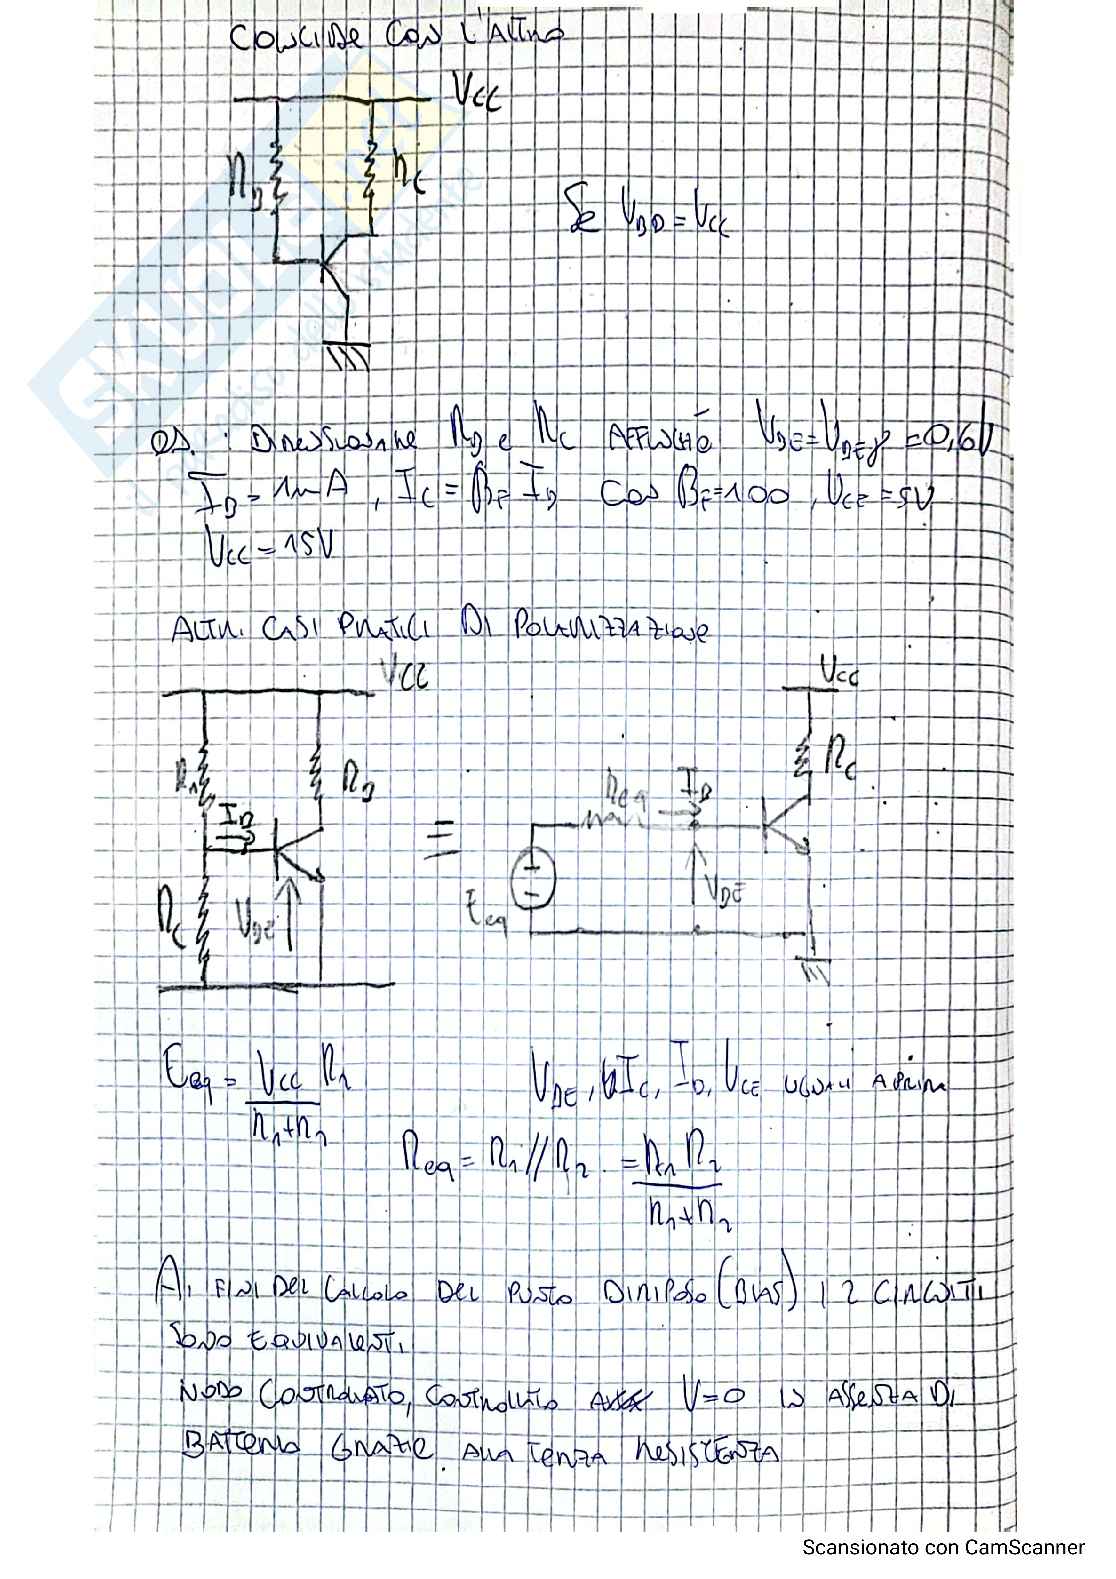 COINCIDE CON L'ALTRO
VCC
RB
RC
Se VBB = VCC
es. : DIMENSIONARE RB e RC AFFINCHÉ VBE = VBEγ = 0,6V
IB = 1mA , IC = βF IB CON βF = 100 , VCE = 5V
VCC = 15V
ALTRI CASI PRATICI DI POLARIZZAZIONE
VCC
R1
RB
IB
RC
VBE
=
VCC
RC
Req
IB
VBE
Eeq
Eeq = VCC R2
R1+R2
VBE, IC, IB, VCE UGUALI A PRIMA
Req = R1 // R2 = R1 R2
R1+R2
AI FINI DEL CALCOLO DEL PUNTO DI RIPOSO (BIAS) I 2 CIRCUITI
SONO EQUIVALENTI.
NODO CONTROLLATO, CONTROLLATO V=0 IN ASSENZA DI
BATTERIA GRAZIE ALLA TERZA RESISTENZA
Scansionato con CamScanner